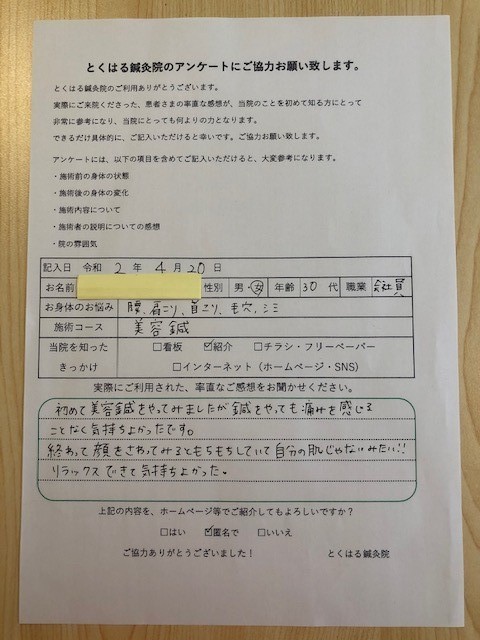 とくはる鍼灸院のアンケートにご協力お願い致します。
とくはる鍼灸院のご利用ありがとうございます。
実際にご来院くださった、患者さまの率直な感想が、当院のことを初めて知る方にとって
非常に参考になり、当院にとっても何よりの力となります。
できるだけ具体的に、ご記入いただけると幸いです。ご協力お願い致します。
アンケートには、以下の項目を含めてご記入いただけると、大変参考になります。
・施術前の身体の状態
・施術後の身体の変化
・施術内容について
・施術者の説明についての感想
・院の雰囲気
記入日 令和 2 年 4 月 20 日
お名前 性別 男・女 年齢 30 代 職業 会社員
お身体のお悩み 腰、肩こり、首こり、毛穴、シミ
施術コース 美容鍼
当院を知った □看板 ☑紹介 □チラシ・フリーペーパー
きっかけ □インターネット（ホームページ・SNS）
実際にご利用された、率直なご感想をお聞かせください。
初めて美容鍼をやってみましたが鍼をやっても痛みを感じる
ことなく気持ちよかったです。
終わって顔をさわってみるともちもちしていて自分の肌じゃないみたい!!
リラックスできて気持ちよかった。
上記の内容を、ホームページ等でご紹介してもよろしいですか？
□はい ☑匿名で □いいえ
ご協力ありがとうございました！ とくはる鍼灸院